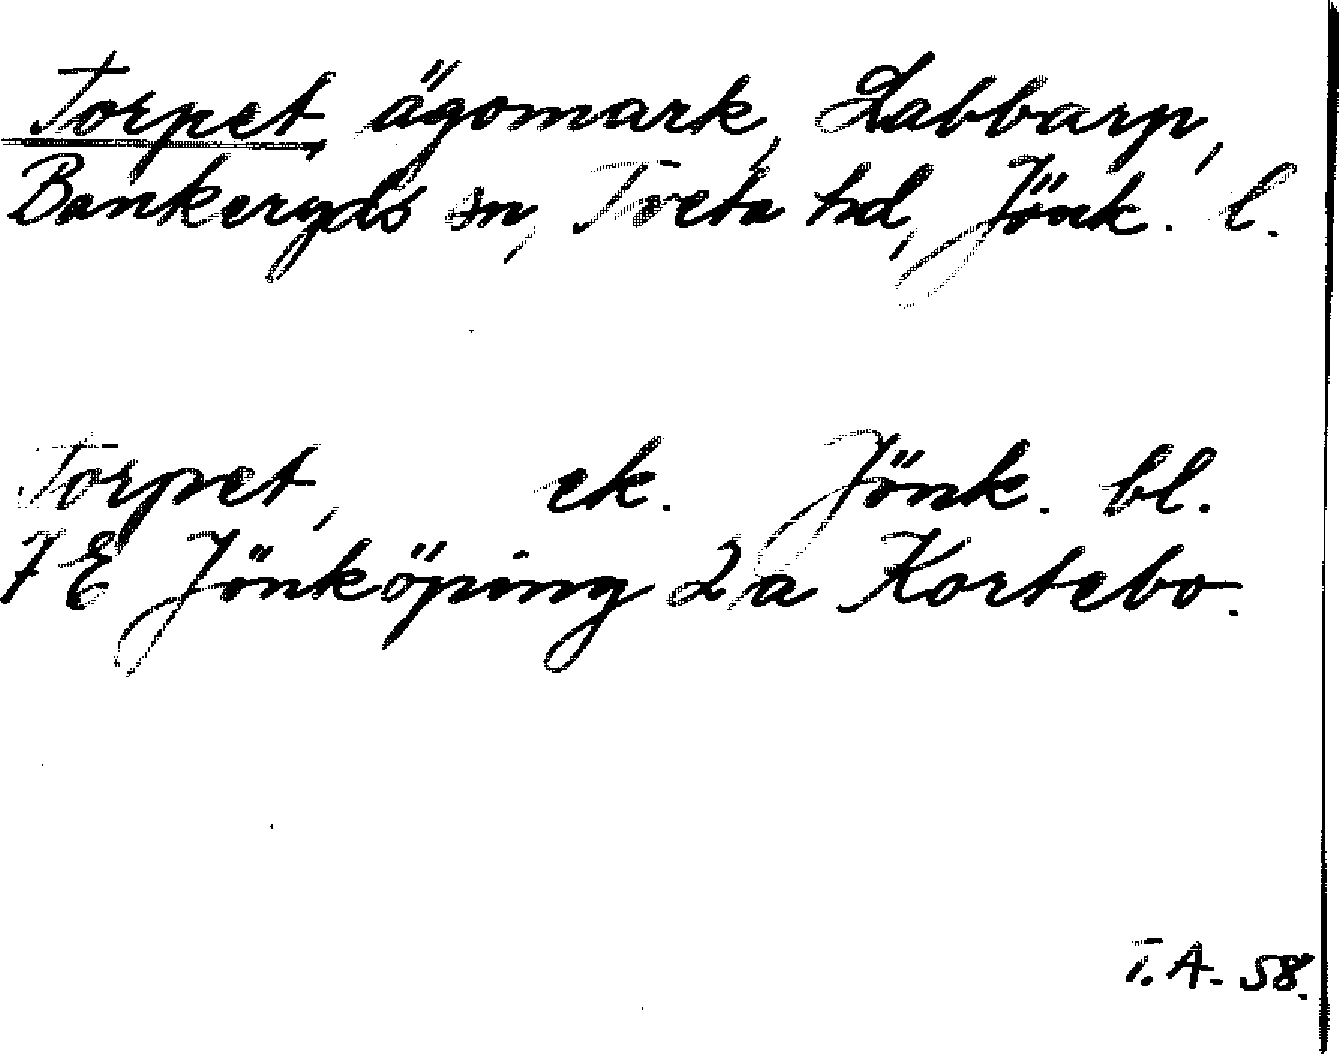 Torpet, ägomark, Labbarp,
Bankeryds sn, Tveta hd, Jönk. l.
Torpet, ek. Jönk. bl.
7 E Jönköping 2 a Kortebo.
T.A. 58.